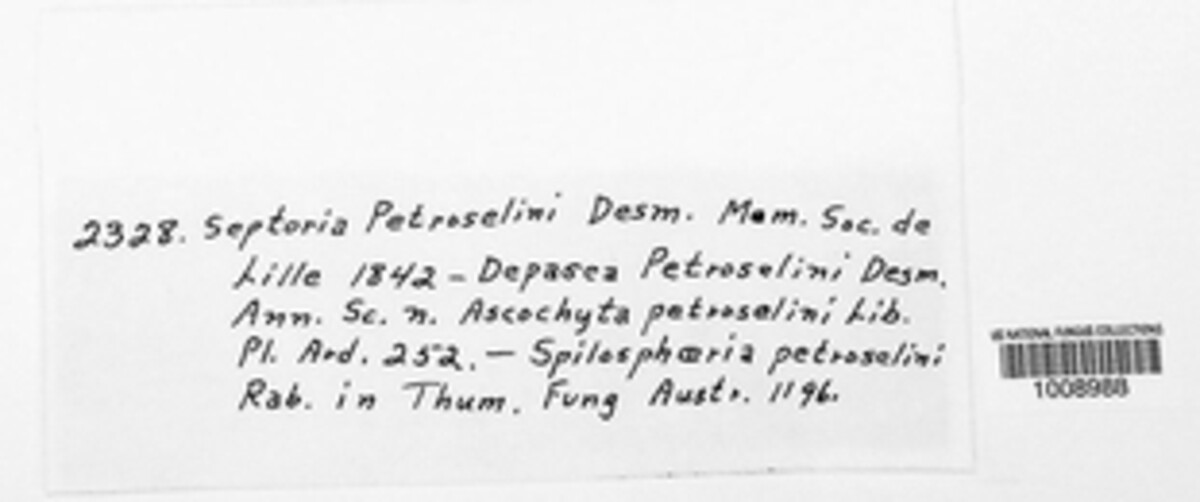 2328. Septoria Petroselini Desm. Mem. Soc. de
Lille 1842 - Depasea Petroselini Desm.
Ann. Sc. n. Ascochyta petroselini Lib.
Pl. Ard. 252. — Spilosphæria petroselini
Rab. in Thum. Fung Austr. 1196.
US NATIONAL FUNGUS COLLECTIONS
1008988